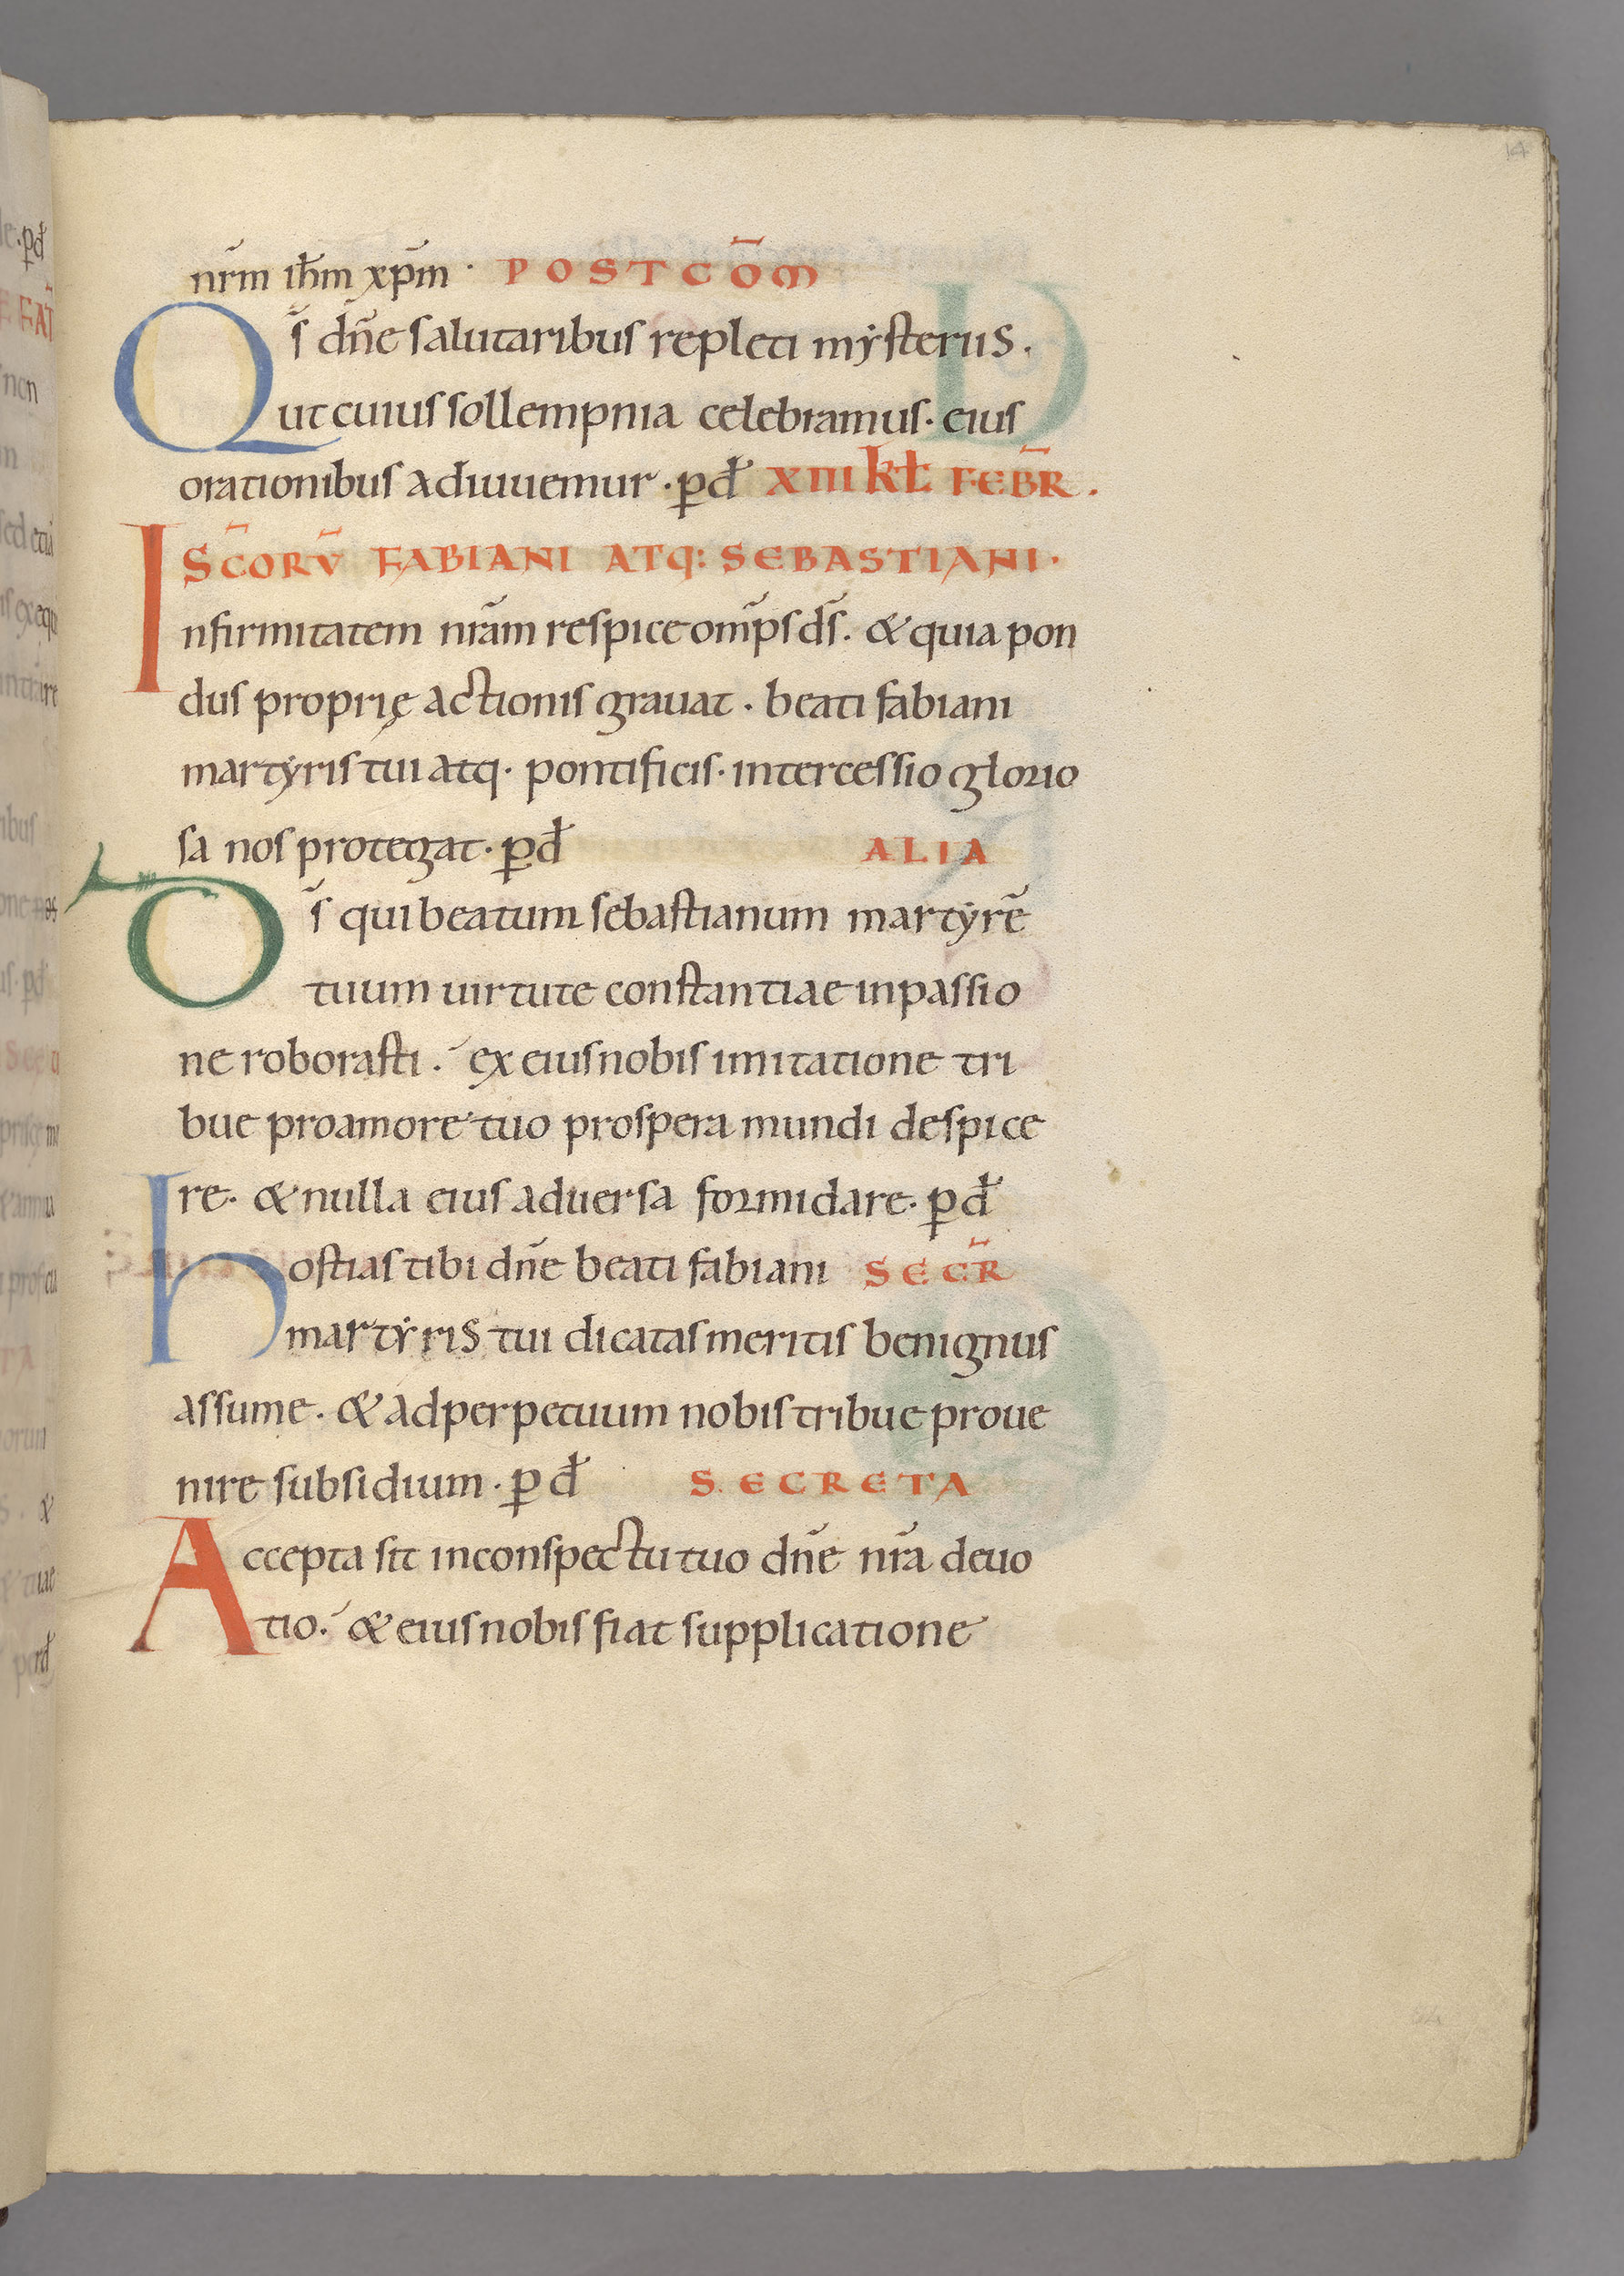 14
nr̄m ih̄m xp̄m · POSTCŌM
Qs̄ dn̄e salutaribus repleti mẏsteriis.
ut cuius sollempnia celebramus. eius
orationibus adiuuemur. pđ XIII kł FEBR̄.
SC̄ORV̄ FABIANI ATQ: SEBASTIANI.
Infirmitatem nr̄am respice om̄ps ds̄. & quia pon
dus proprię actionis grauat. beati fabiani
martẏris tui atq. pontificis. intercessio glorio
sa nos protegat. pđ ALIA
Ds̄ qui beatum sebastianum martẏrē
tuum uirtute constantiae in passio
ne roborasti. ex eius nobis imitatione tri
bue pro amore tuo prospera mundi despice
re. & nulla eius aduersa formidare. pđ
hostias tibi dn̄e beati fabiani SECR̄
martẏris tui dicatas meritis benignus
assume. & ad perpetuum nobis tribue proue
nire subsidium. pđ SECRETA
Accepta sit in conspectu tuo dn̄e nr̄a deuo
tio. & eius nobis fiat supplicatione